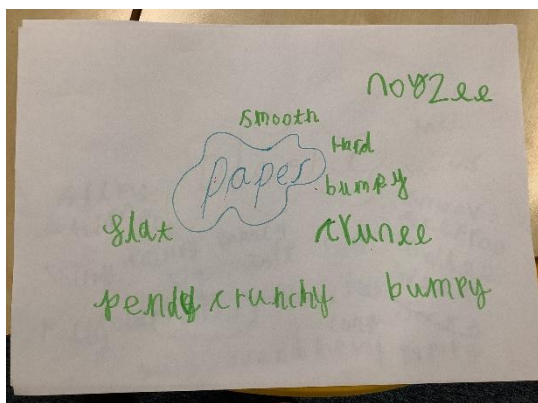 noyzee
smooth
Hard
paper
bumpy
flat crunee
bendy crunchy bumpy